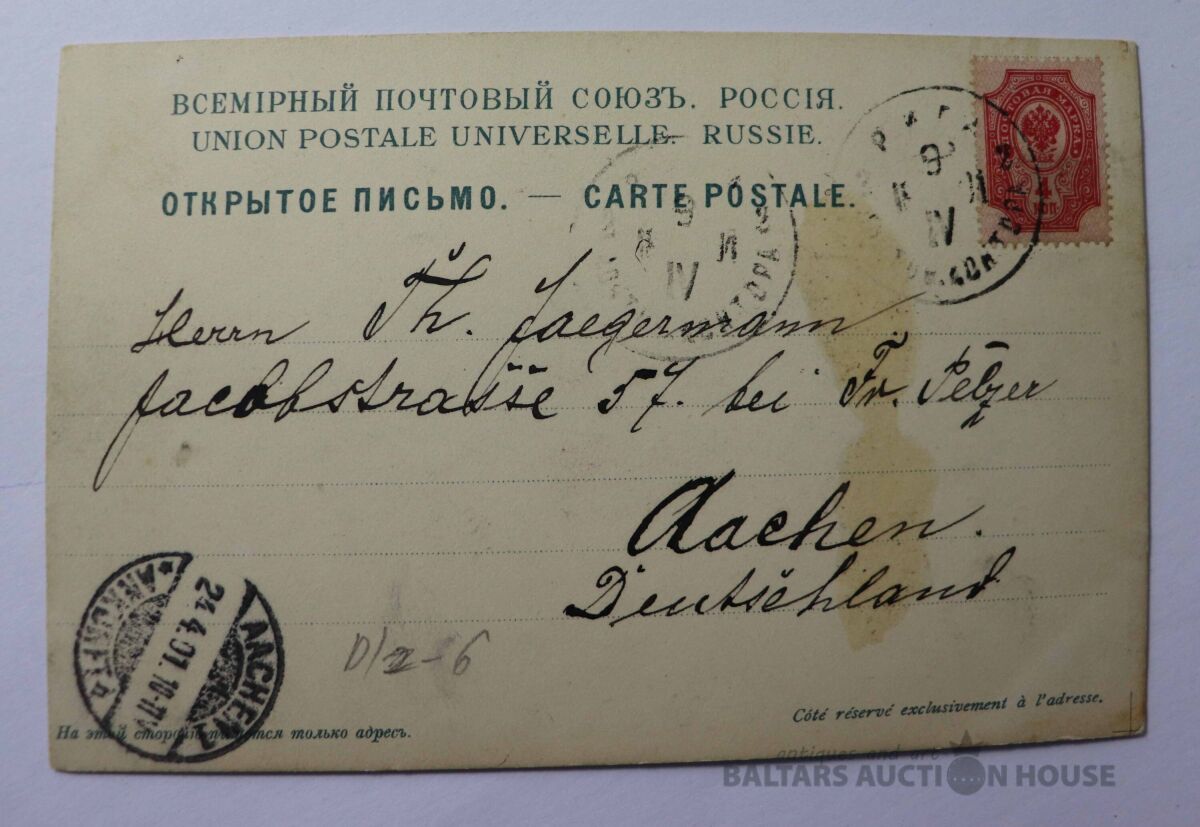 ВСЕМІРНЫЙ ПОЧТОВЫЙ СОЮЗЪ. РОССІЯ.
UNION POSTALE UNIVERSELLE. RUSSIE.
ОТКРЫТОЕ ПИСЬМО. — CARTE POSTALE.
ПОЧТОВАЯ МАРКА
4
КОП.
РИГА
9
IV
КОНТОРА
9
IV
КОНТОРА
Herrn Th. Jaegermann
Jacobstrasse 57. bei Fr. Pelzer
Aachen.
Deutschland
AACHEN 2
24.4.01. 10-11V
*ANKUNFT*
D/2-6
Côté réservé exclusivement à l'adresse.
На этой сторонѣ пишется только адресъ.
antiques and art
BALTARS AUCTION HOUSE